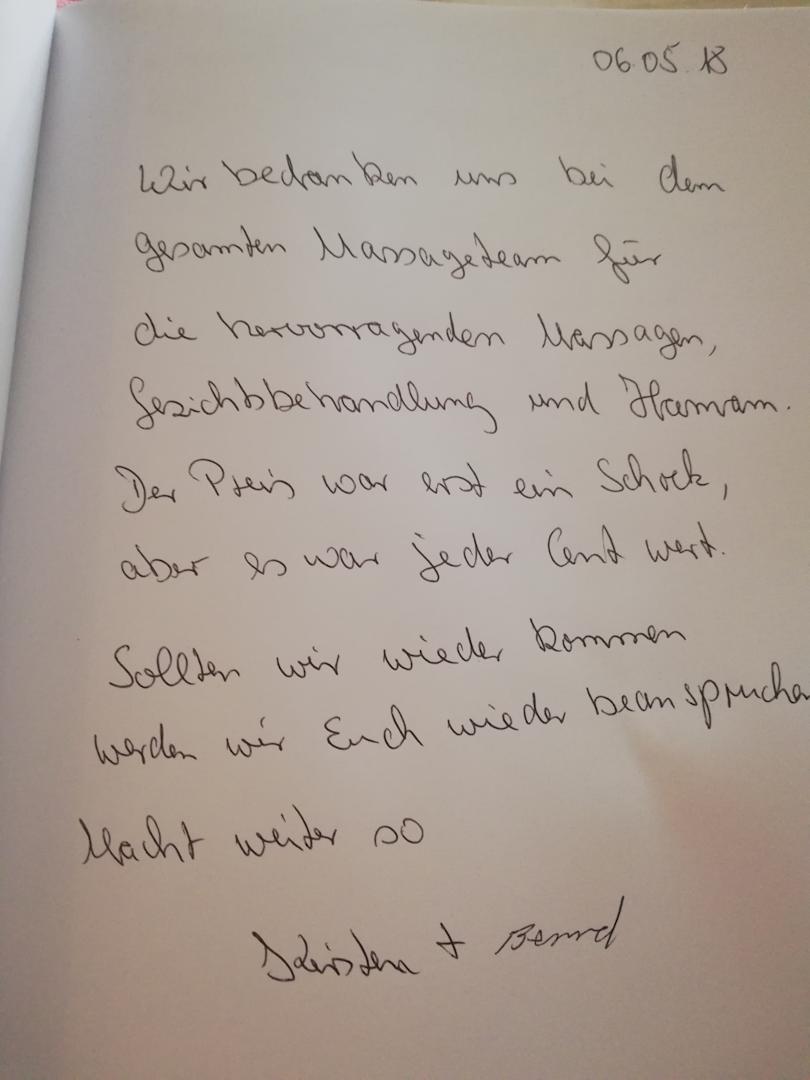 06.05.18
Wir bedanken uns bei dem
gesamten Massageteam für
die hervorragenden Massagen,
Gesichtsbehandlung und Hamam.
Der Preis war erst ein Schock,
aber es war jeder Cent wert.
Sollten wir wieder kommen
werden wir Euch wieder beanspruche
Macht weiter so
Kirsten + Bernd